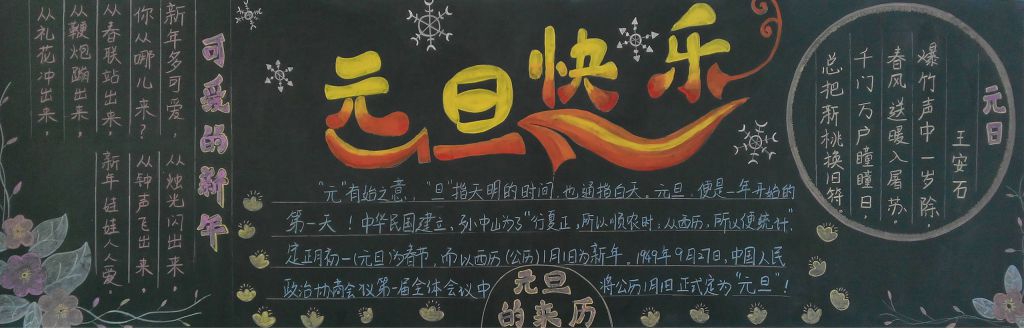 元旦快乐
可爱的新年
新年多可爱，
你从哪儿来？
从春联站出来，
从鞭炮蹦出来，
从礼花冲出来，
从烛光闪出来，
从钟声飞出来，
新年娃娃人人爱。
"元"有始之意，"旦"指天明的时间，也通指白天。元旦，便是一年开始的
第一天！中华民国建立，孙中山为了"行夏正，所以顺农时，从西历，所以便统计"，
定正月初一(元旦)为春节，而以西历(公历)1月1日为新年。1949年9月27日，中国人民
政治协商会议第一届全体会议中 将公历1月1日正式定为"元旦"！
元旦
的来历
元日
王安石
爆竹声中一岁除，
春风送暖入屠苏。
千门万户曈曈日，
总把新桃换旧符。